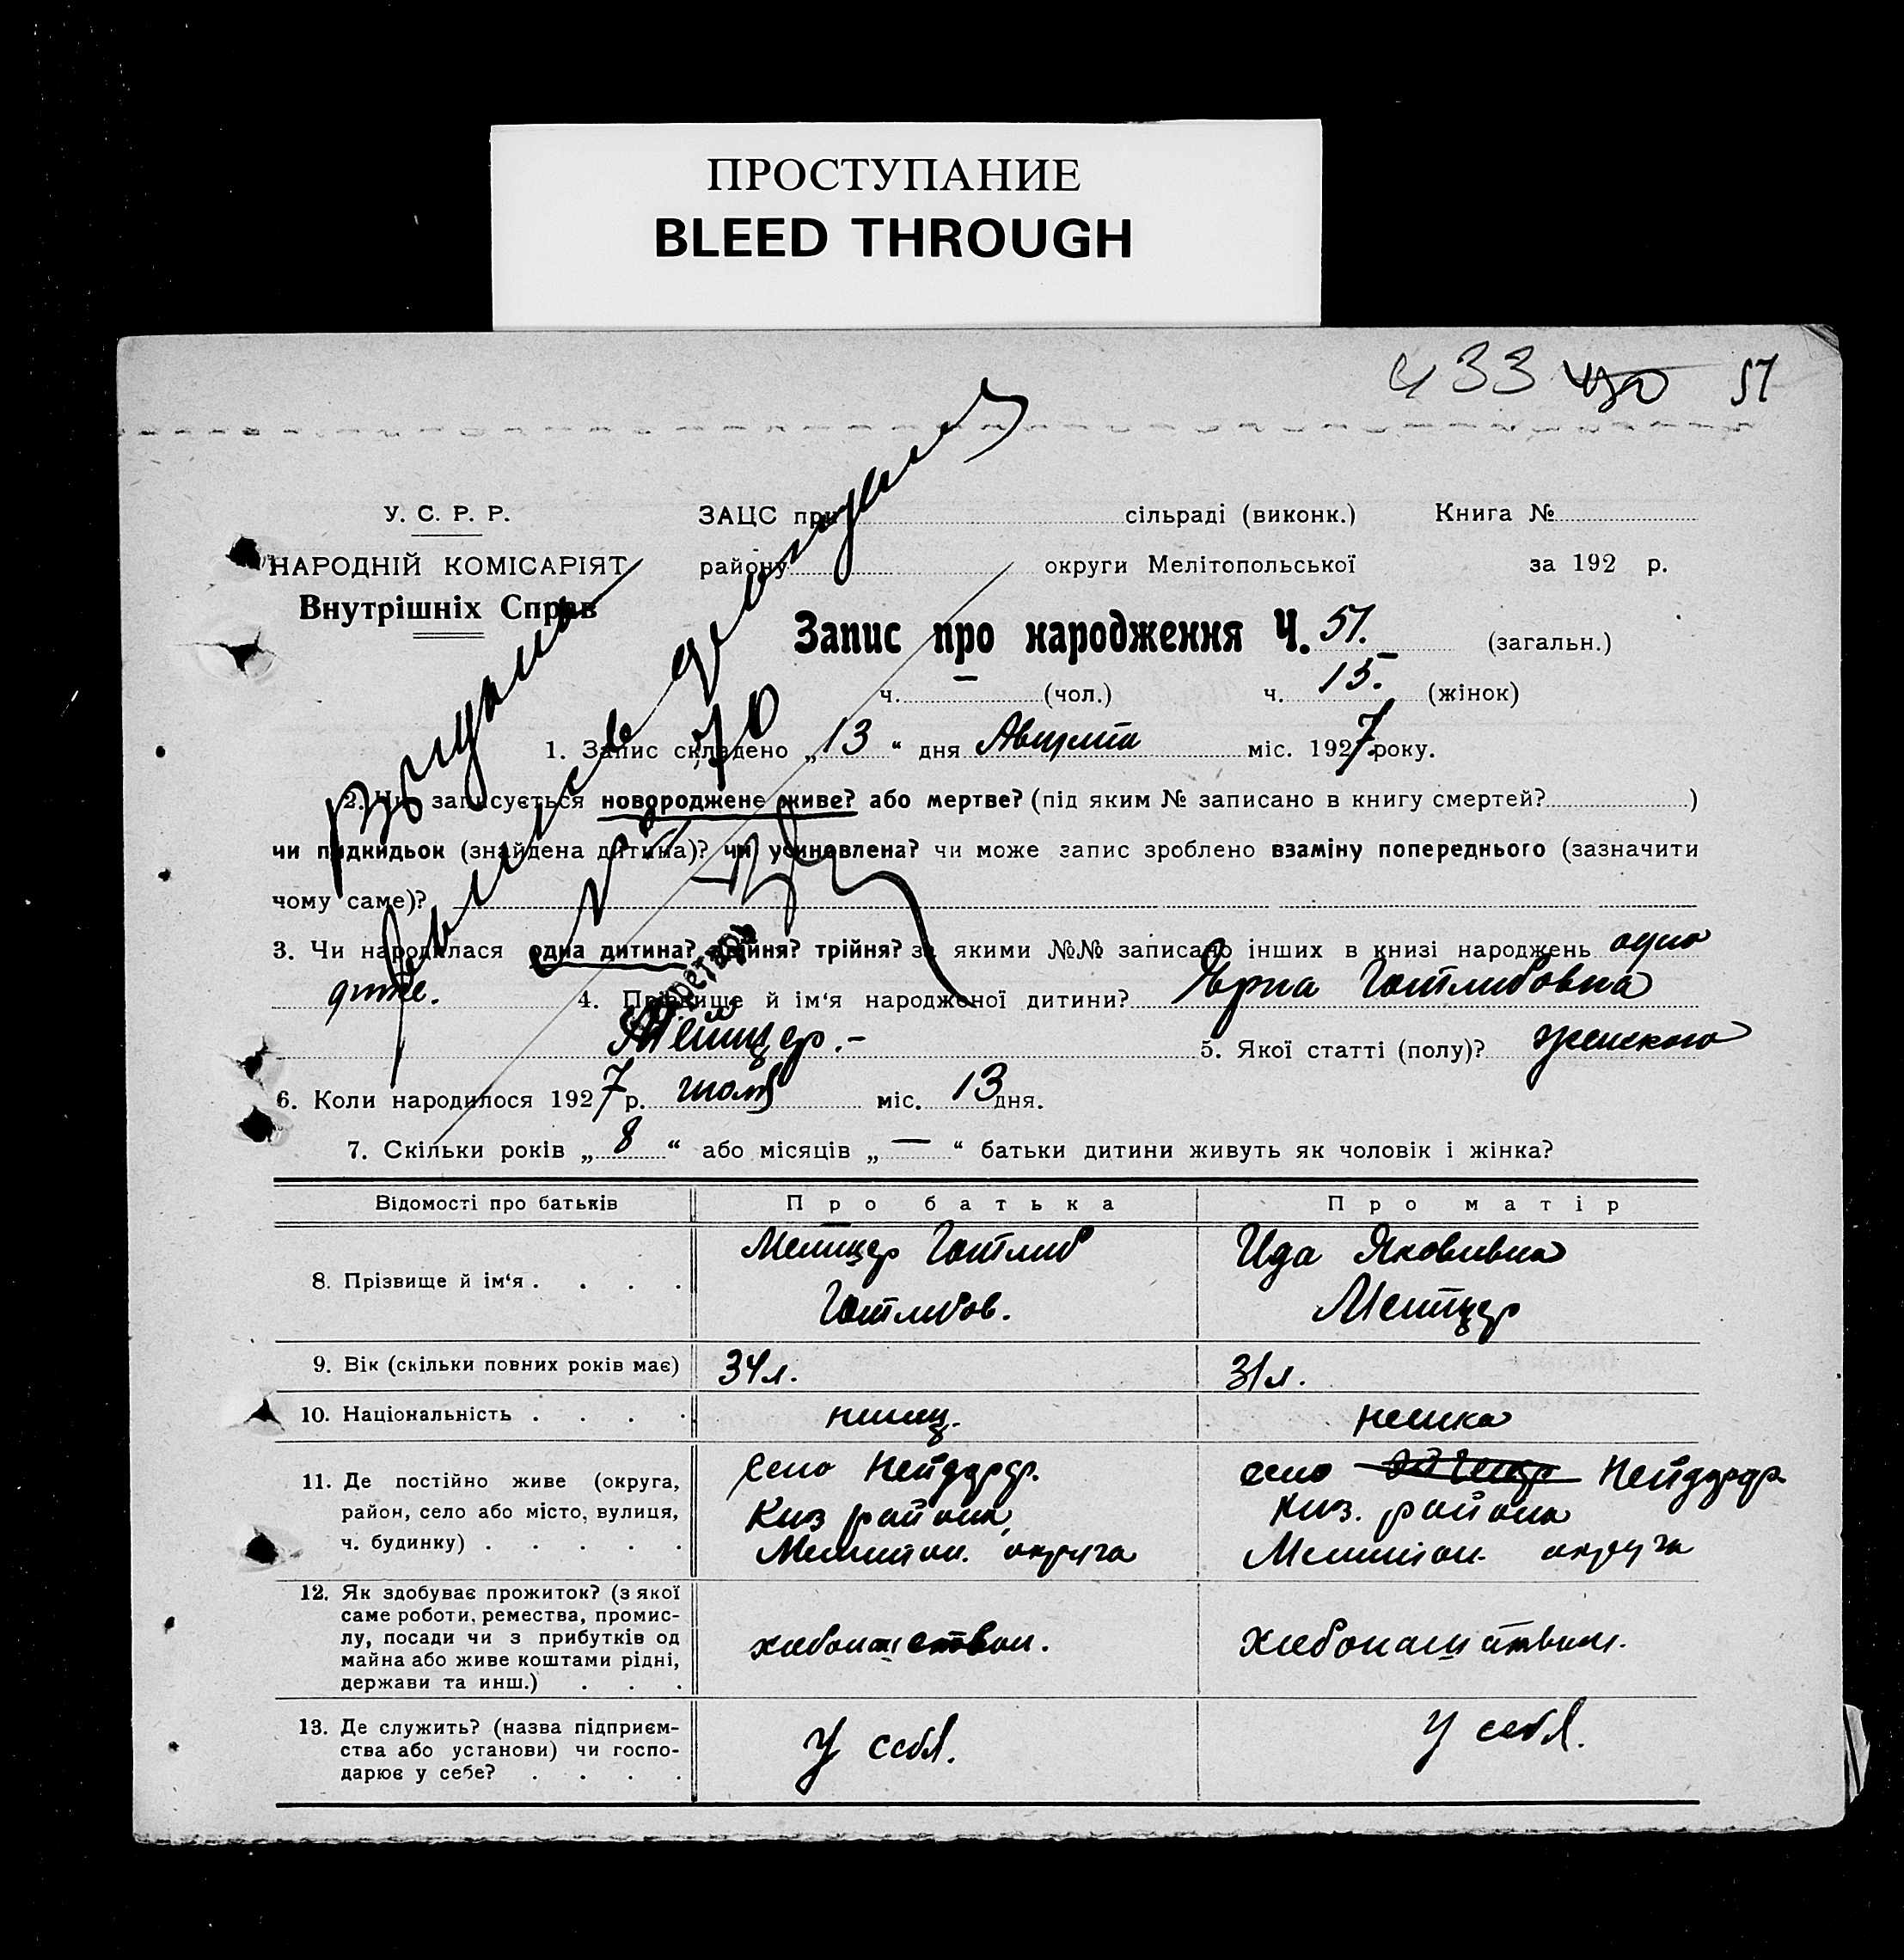 ПРОСТУПАНИЕ
BLEED THROUGH
433 430 51
У. С. Р. Р.
НАРОДНІЙ КОМІСАРІЯТ
Внутрішніх Справ
ЗАЦС при сільраді (виконк.) Книга №
району округи Мелітопольської за 192 р.
Запис про народження Ч. 51. (загальн.)
ч. — (чол.) ч. 15. (жінок)
1. Запис складено „ 13 “ дня Августа міс. 1927 року.
2. Чи записується новороджене живе? або мертве? (під яким № записано в книгу смертей? )
чи підкидьок (знайдена дитина)? чи усиновлена? чи може запис зроблено взаміну попереднього (зазначити
чому саме)?
3. Чи народилася одна дитина? двійня? трійня? за якими №№ записано інших в книзі народжень одно
дитя. 4. Прізвище й ім‘я народженої дитини? Ирма Готлибовна
Мейцер.– 5. Якої статті (полу)? женского
6. Коли народилося 1927 р. июля міс. 13 дня.
7. Скільки років „ 8 “ або місяців „ — “ батьки дитини живуть як чоловік і жінка?
Секретарь
Відомості про батьків Про батька Про матір
8. Прізвище й ім‘я . . . . Мейцер Готлиб Ида Яковливна
Готлибов. Мейцер
9. Вік (скільки повних років має) 34 л. 31 л.
10. Національність . . . . нимец. немка
11. Де постійно живе (округа, район, село або місто, вулиця, ч. будинку) . . . . .
село Нейдорф. село Нейдорф
Киз района, Киз. района
Мелитоп. округа Мелитоп. округа
12. Як здобуває прожиток? (з якої
саме роботи, ремества, промис-
лу, посади чи з прибутків од
майна або живе коштами рідні,
держави та инш.) . . .
хлебопашеством. хлебопашеством.
13. Де служить? (назва підприєм-
ства або установи) чи госпо-
дарює у себе? . . . .
У себя. У себя.